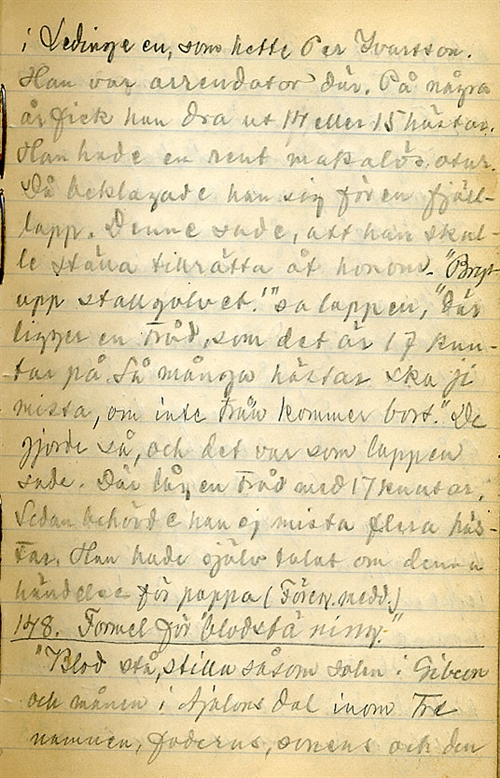 i Ledinge en, som hette Per Ivarsson.
Han var arrendator där. På några
år fick han dra ut 14 eller 15 hästar.
Han hade en rent makalös otur.
Då beklagade han sig för en fjäll-
lapp. Denne sade, att han skul-
le ställa tillrätta åt honom. "Bryt
upp stallgolvet!" sa lappen, "där
ligger en tråd, som det är 17 knu-
tar på. Så många hästar ska ji
mista, om inte trån kommer bort." De
gjorde så, och det var som lappen
sade. Där låg en tråd med 17 knutar.
Sedan behövde han ej mista flera häs-
tar. Han hade själv talat om denna
händelse för pappa (Föreg. medd.)
148. Formel för "blodstä ning."
"Blod stå, stilla såsom solen i Gibeon
och månen i Ajalons dal inom Tre
namnen, faderns, sonens och den